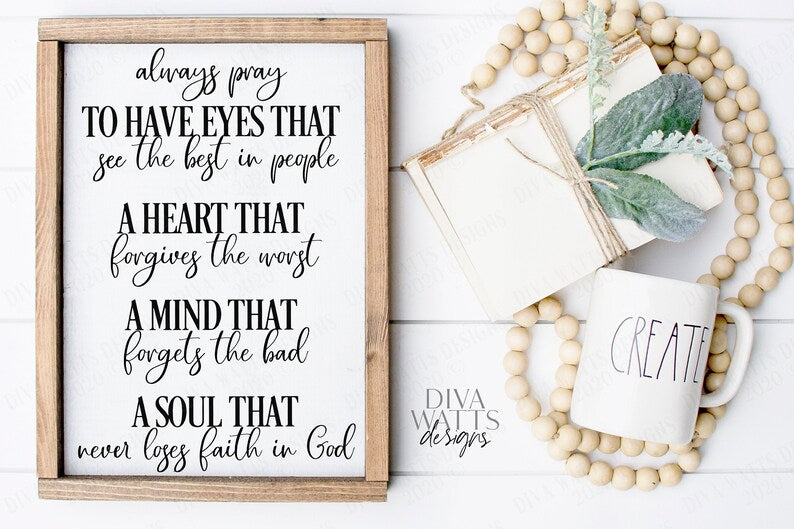 always pray
TO HAVE EYES THAT
see the best in people
A HEART THAT
forgives the worst
A MIND THAT
forgets the bad
A SOUL THAT
never loses faith in God
DIVA
WATTS
designs
CREATE
DIVA WATTS DESIGNS
© 2020